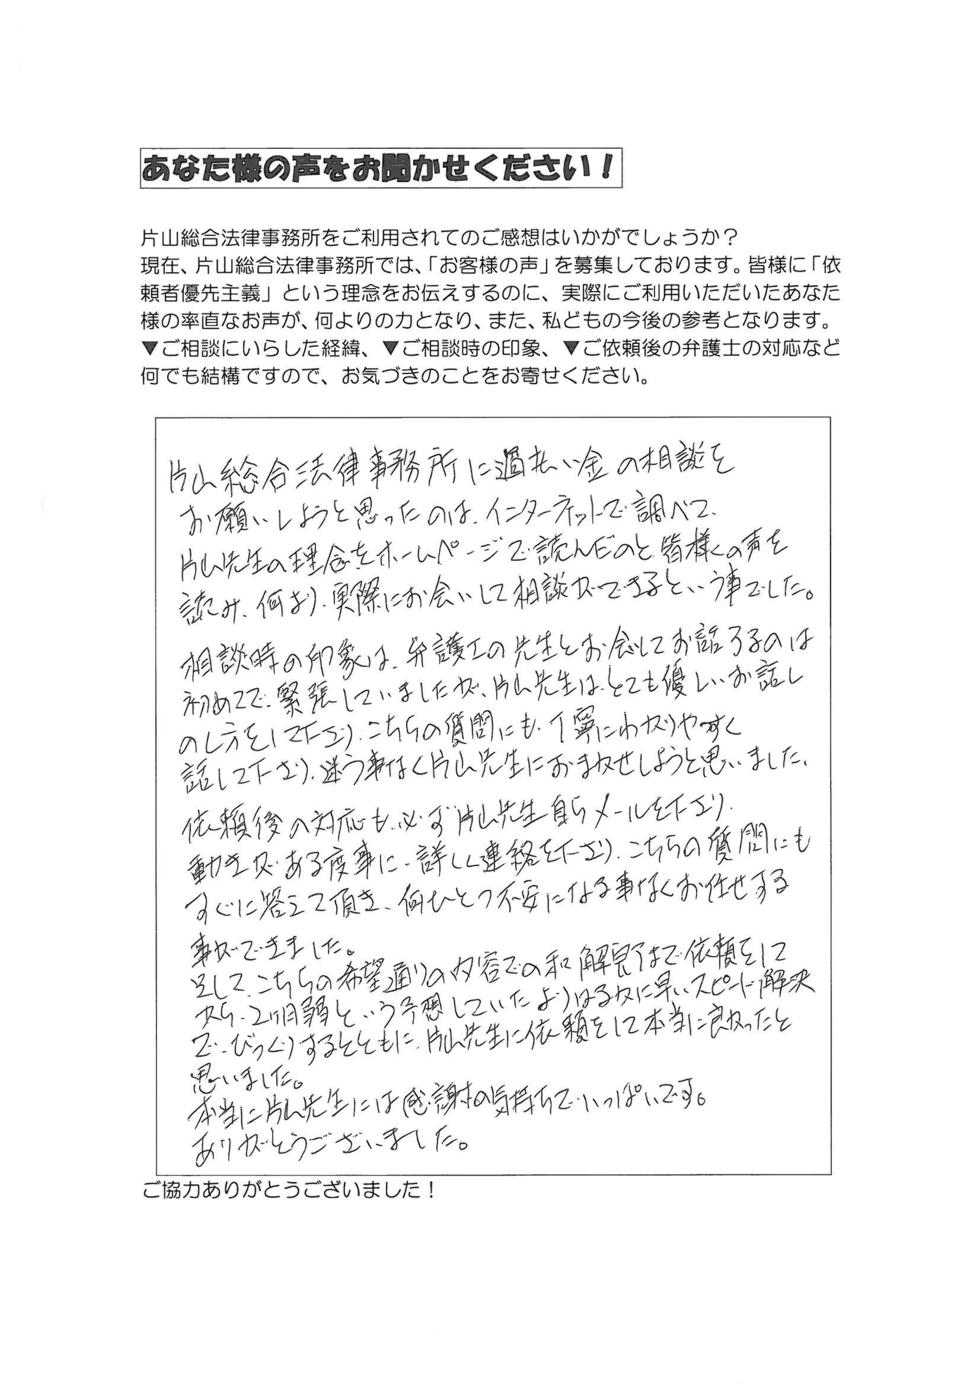 あなた様の声をお聞かせください！
片山総合法律事務所をご利用されてのご感想はいかがでしょうか？
現在、片山総合法律事務所では、「お客様の声」を募集しております。皆様に「依
頼者優先主義」という理念をお伝えするのに、実際にご利用いただいたあなた
様の率直なお声が、何よりの力となり、また、私どもの今後の参考となります。
▼ご相談にいらした経緯、▼ご相談時の印象、▼ご依頼後の弁護士の対応など
何でも結構ですので、お気づきのことをお寄せください。
片山総合法律事務所に過払い金の相談を
お願いしようと思ったのは、インターネットで調べて、
片山先生の理念をホームページで読んだのと、皆様の声を
読み、何より、実際にお会いして相談ができるという事でした。
相談時の印象は、弁護士の先生とお会してお話するのは
初めてで、緊張していましたが、片山先生は、とても優しいお話し
のし方をして下さり、こちらの質問にも、丁寧にわかりやすく
話して下さり、迷う事なく片山先生におまかせしようと思いました。
依頼後の対応も、必ず片山先生自らメールを下さり、
動きがある度事に、詳しく連絡を下さり、こちらの質問にも
すぐに答えて頂き、何ひとつ不安になる事なくお任せする
事ができました。
そして、こちらの希望通りの内容での和解完了まで依頼をして
から、2ヶ月弱という予想していたよりはるかに早いスピード解決
で、びっくりするとともに、片山先生に依頼をして本当に良かったと
思いました。
本当に片山先生には感謝の気持ちでいっぱいです。
ありがとうございました。
ご協力ありがとうございました！